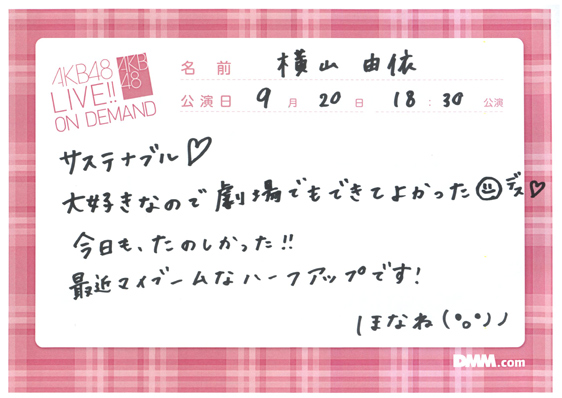 AKB48
LIVE!!
ON DEMAND
AKB
48
名前 横山 由依
公演日 9月20日 18:30公演
サステナブル♡
大好きなので劇場でもできてよかった☺デス♡
今日も、たのしかった!!
最近マイブームなハーフアップです!
ほなね(°。°)ノ
DMM.com